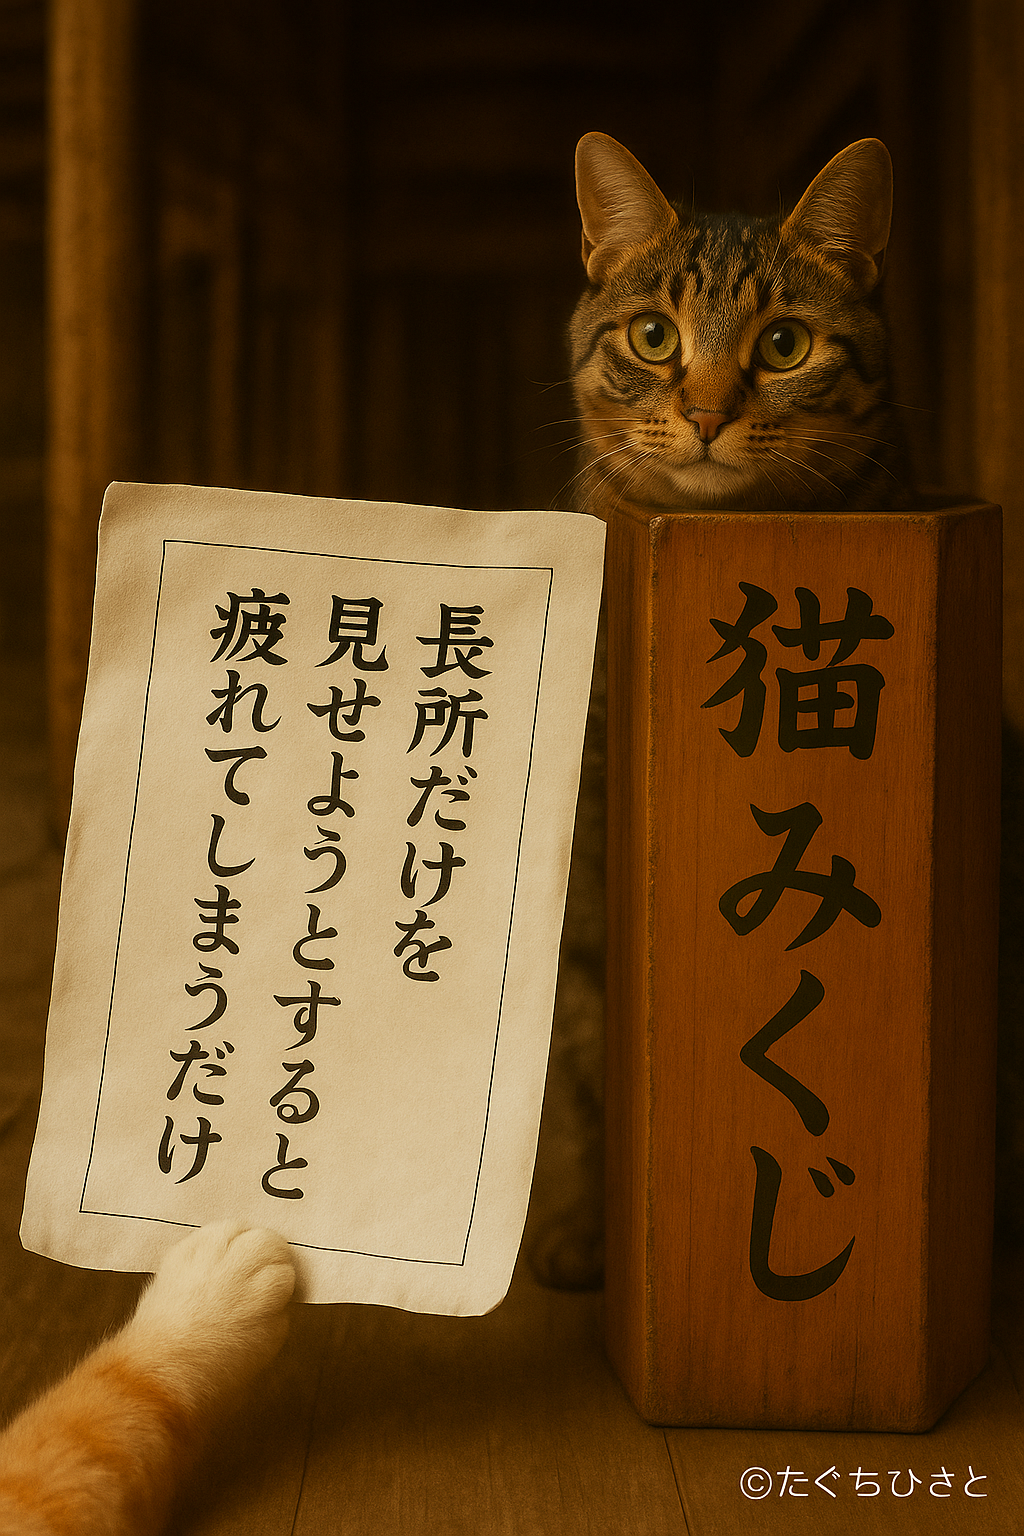 長所だけを
見せようとすると
疲れてしまうだけ
猫みくじ
©たぐちひさと